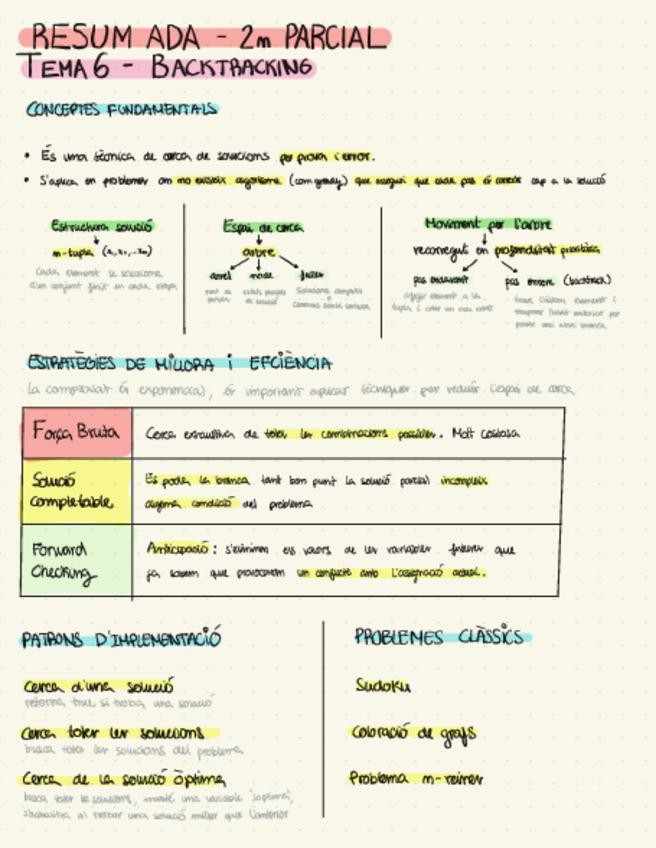 RESUM ADA - 2n PARCIAL
TEMA 6 - BACKTRACKING
CONCEPTES FUNDAMENTALS
• És una tècnica de cerca de solucions per prova i error.
• S'aplica en problemes on no existeix algorisme (com greedy) que asseguri que cada pas és correcte cap a la solució
Estructura solució
n-tupla (x₁, x₂, ..., xₙ)
Cada element se selecciona
d'un conjunt finit en cada etapa
Espai de cerca
arbre
arrel node fulles
Solucions completes
o
Moviment per l'arbre
recorregut en profunditat prioritària
pas endavant pas enrere (backtrack)
afegir element a la
tupla i crear un nou
treure l'últim element i
recuperar l'estat anterior per
provar una altra branca
ESTRATÈGIES DE MILLORA i EFICIÈNCIA
La complexitat és exponencial, és important aplicar tècniques per reduir l'espai de cerca
Força Bruta
Cerca exhaustiva de totes les combinacions possibles. Molt costosa
Solució
completable
Es poda la branca tant bon punt la solució parcial incompleix
alguna condició del problema
Forward
Checking
Anticipació: s'eliminen els valors de les variables futures que
ja sabem que provocarien un conflicte amb l'assignació actual.
PATRONS D'IMPLEMENTACIÓ
Cerca d'una solució
retorna true si troba una solució
Cerca totes les solucions
busca totes les solucions del problema
Cerca de la solució òptima
busca totes les solucions, manté una variable 'soptima',
s'actualitza al trobar una solució millor que l'anterior
PROBLEMES CLÀSSICS
Sudoku
Coloració de grafs
Problema n-reines